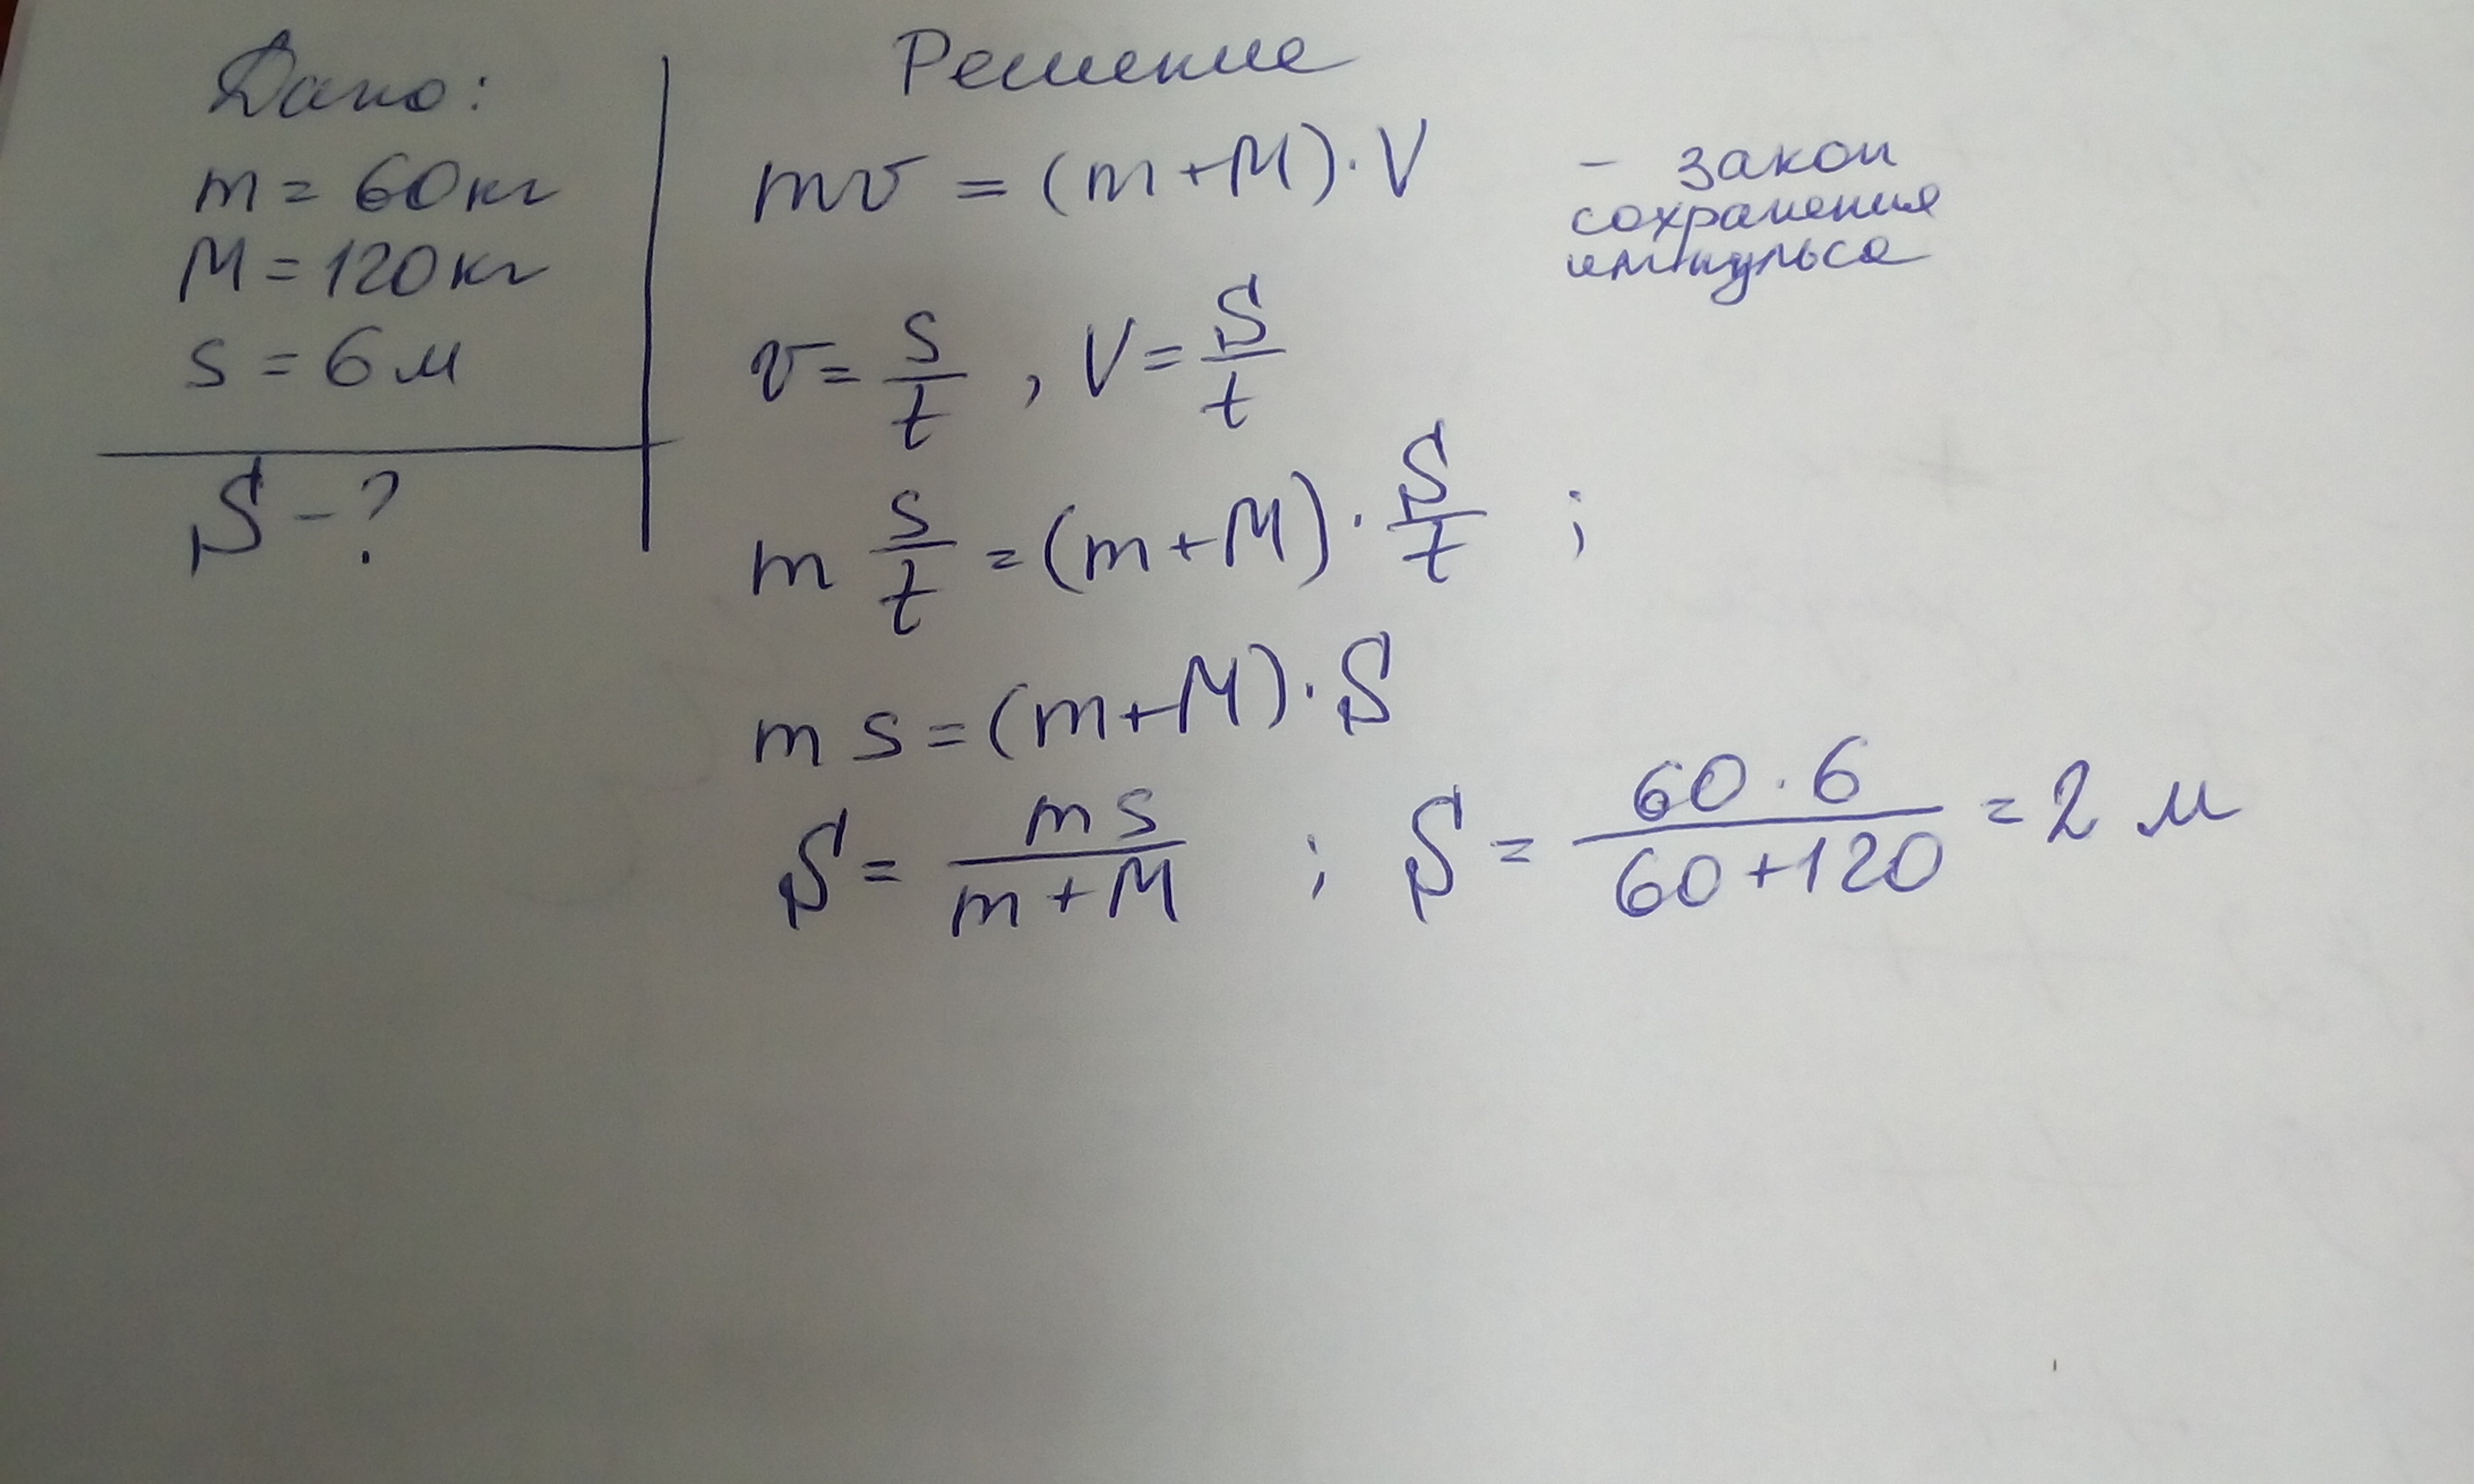 Дано:
m = 60кг
M = 120кг
s = 6 м
S - ?
Решение
mv = (m + M) · V - закон
сохранения
импульса
v = s/t , V = S/t
m s/t = (m + M) · S/t ;
m s = (m + M) · S
S = ms/(m + M) ; S = (60 · 6)/(60 + 120) = 2 м